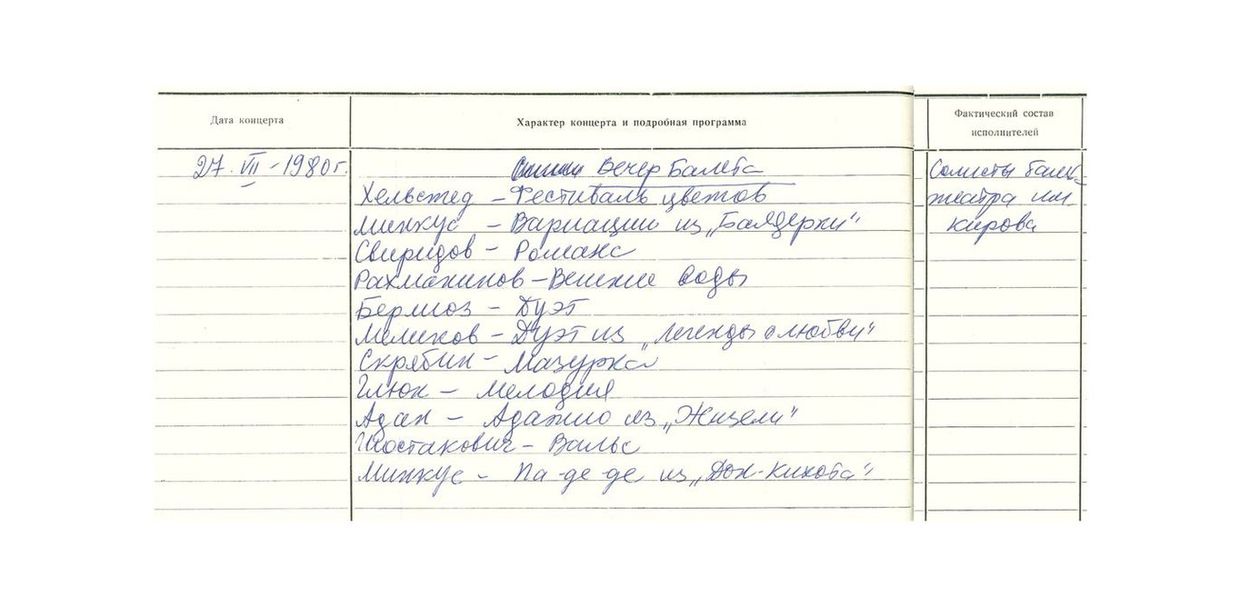 Дата концерта
Характер концерта и подробная программа
Фактический состав
исполнителей
27. VII - 1980 г.
Вечер Балета
Хельстед - Фестиваль цветов
Минкус - Вариации из „Баядерки"
Свиридов - Романс
Рахманинов - Вешние воды
Берлиоз - Дуэт
Меликов - Дуэт из „Легенды о любви"
Скрябин - Мазурка
Глюк - Мелодия
Адан - Адажио из „Жизели"
Шостакович - Вальс
Минкус - Па-де-де из „Дон-Кихота"
Солисты
театра им.
Кирова